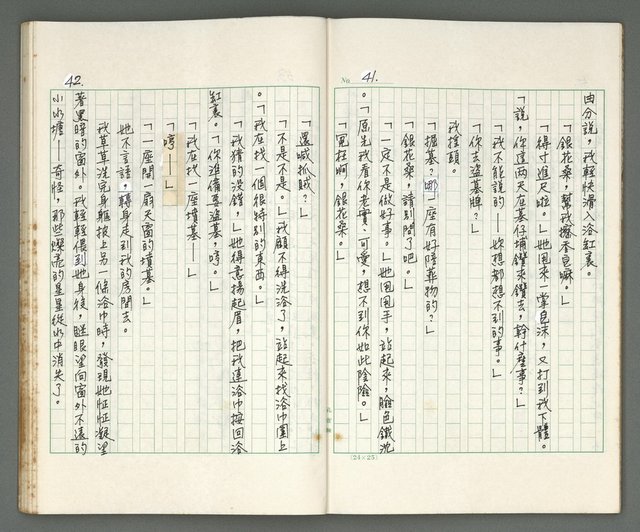 No. 41.
由分說，我輕快滑入浴缸裏。
「銀花桑，幫我擦香皂嘛。」
「得寸進尺啦。」她甩來一掌皂沫，又打到我下體。
「說，你這兩天在墓仔埔鑽來鑽去，幹什麼事？」
「我不能說的——妳想都想不到的事。」
「你去盜墓牌？」
我搖頭。
「掘墓？哪一座有好陪葬物的？」
「銀花桑，請別問了吧。」
「一定不是做好事。」她甩甩手，站起來，臉色鐵沈
。「原先我看你老實、可愛，想不到你如此陰險。」
「冤枉啊，銀花桑。」
(24×25)
42.
「還喊抓賊？」
「不是不是。」我顧不得洗浴了，站起來找浴巾圍上
。「我在找一個很特別的東西。」
「我猜的沒錯，」她得意揚起眉，把我連浴巾按回浴
缸裏。「你準備要盜墓，哼。」
「我在找一座墳墓——」
「哼——」
「一座開一扇天窗的墳墓。」
她不言語，轉身走到我的房間去。
我草草洗完身軀披上另一條浴巾時，發現她怔怔凝望
著黑暗的窗外。我輕輕偎到她身後，瞇眼望向窗外不遠的
小水塘——奇怪，那些燦亮的星星從水中消失了。